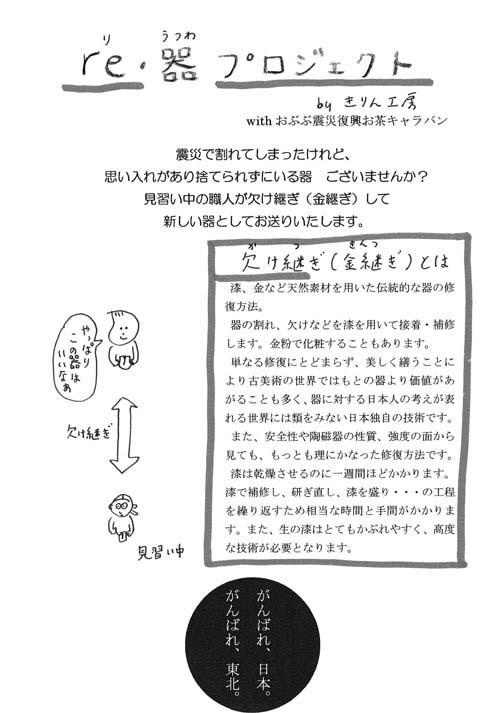 り うつわ
re・器 プロジェクト
by きりん工房
with おぶぶ震災復興お茶キャラバン
震災で割れてしまったけれど、
思い入れがあり捨てられずにいる器　ございませんか？
見習い中の職人が欠け継ぎ（金継ぎ）して
新しい器としてお送りいたします。
か つ きんつ
欠け継ぎ(金継ぎ)とは
漆、金など天然素材を用いた伝統的な器の修
復方法。
器の割れ、欠けなどを漆を用いて接着・補修
します。金粉で化粧することもあります。
単なる修復にとどまらず、美しく繕うことに
より古美術の世界ではもとの器より価値があ
がることも多く、器に対する日本人の考えが表
れる世界には類をみない日本独自の技術です。
また、安全性や陶磁器の性質、強度の面から
見ても、もっとも理にかなった修復方法です。
漆は乾燥させるのに一週間ほどかかります。
漆で補修し、研ぎ直し、漆を盛り・・・の工程
を繰り返すため相当な時間と手間がかかりま
す。また、生の漆はとてもかぶれやすく、高度
な技術が必要となります。
やっぱり
この器は
いいなぁ
欠け継ぎ
見習い中
がんばれ、日本。
がんばれ、東北。